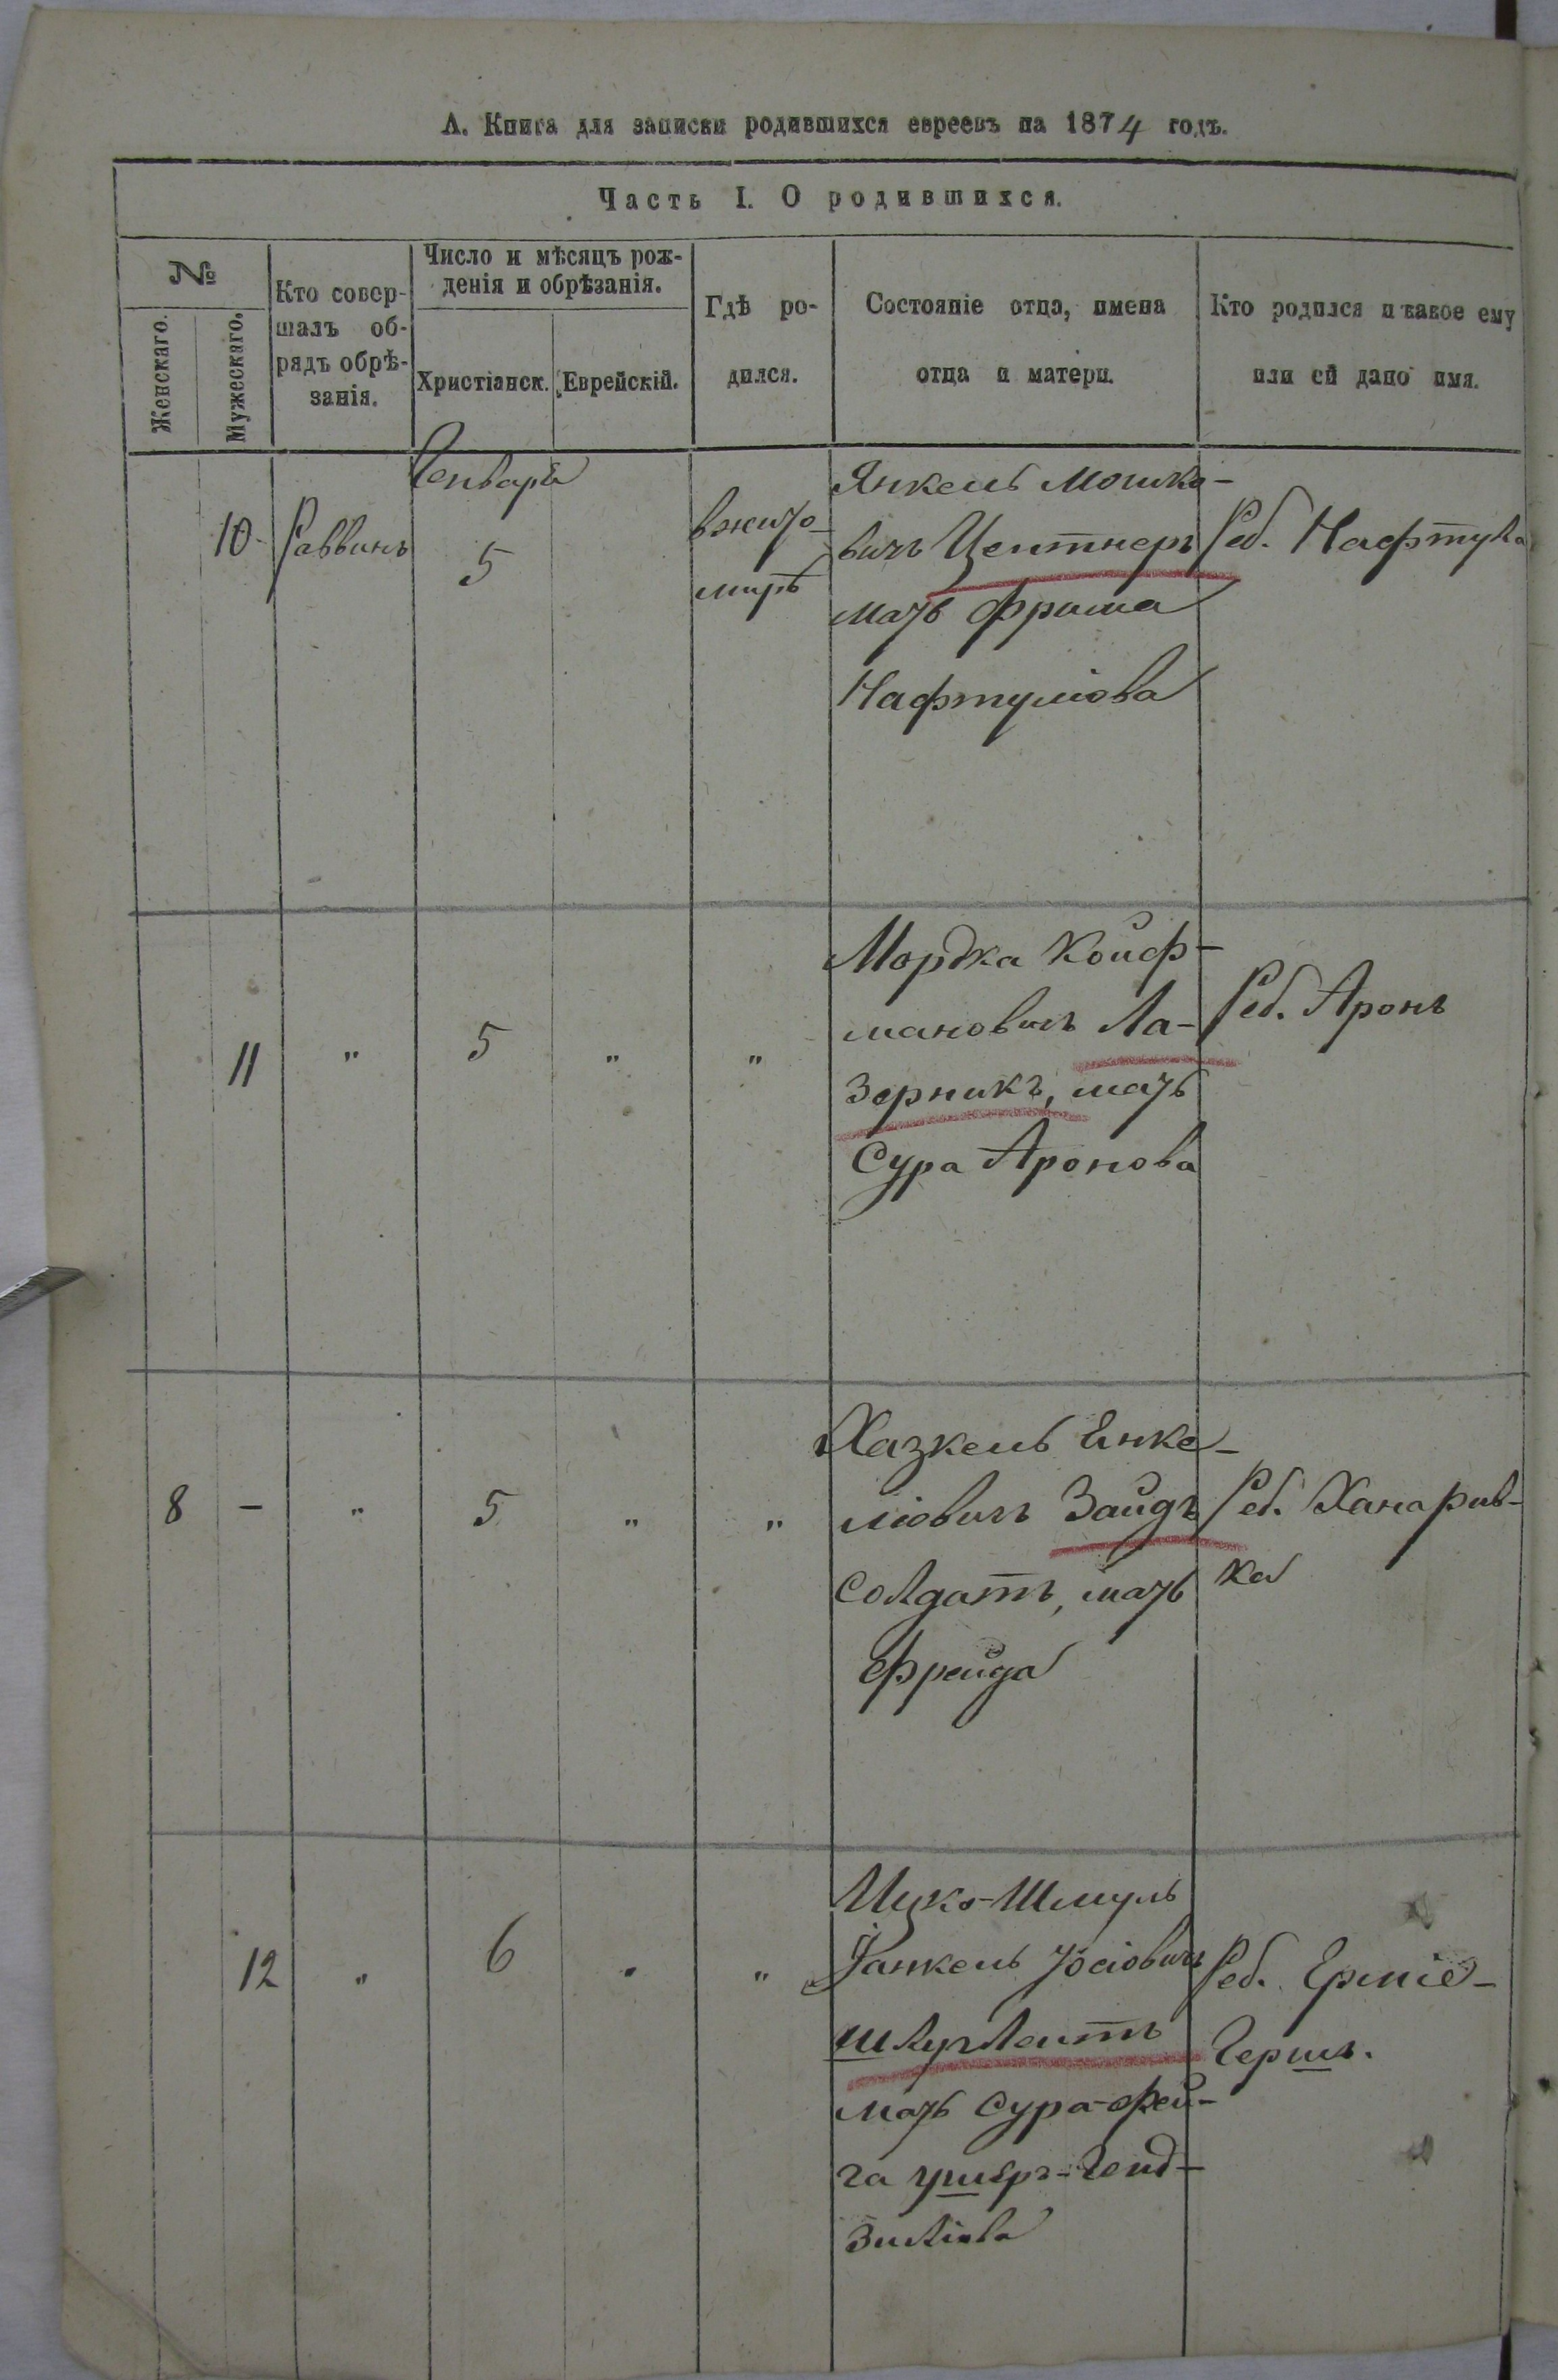 А. Книга для записки родившихся евреевъ на 1874 годъ.
Часть I. О родившихся.
№
Женскаго.
Мужескаго.
Кто совер-
шалъ об-
рядъ обрѣ-
занія.
Число и мѣсяцъ рож-
денія и обрѣзанія.
Христіанск.
Еврейскій.
Гдѣ ро-
дился.
Состояніе отца, имена
отца и матери.
Кто родился и какое ему
или ей дано имя.
Генваря
10
Раввинъ
5
в жито-
мирѣ
Янкель Мошко-
вичъ Центнеръ
мать Фрима
Нафтуліова
Реб. Нафтула
11
"
5
"
"
Мордка Койф-
мановичъ Ла-
зерникъ, мать
Сура Аронова
Реб. Аронъ
8
-
"
5
"
"
Хазкель Енке-
ліовичъ Зайдъ
солдатъ, мать
Фрейда
Реб. Хана Рив-
ка
12
"
6
"
"
Ицко-Шмуль
Янкель Іосіовичъ
мать Сура-Фей-
га Ушеръ-Генд-
зиліова
Реб.
Гершъ.